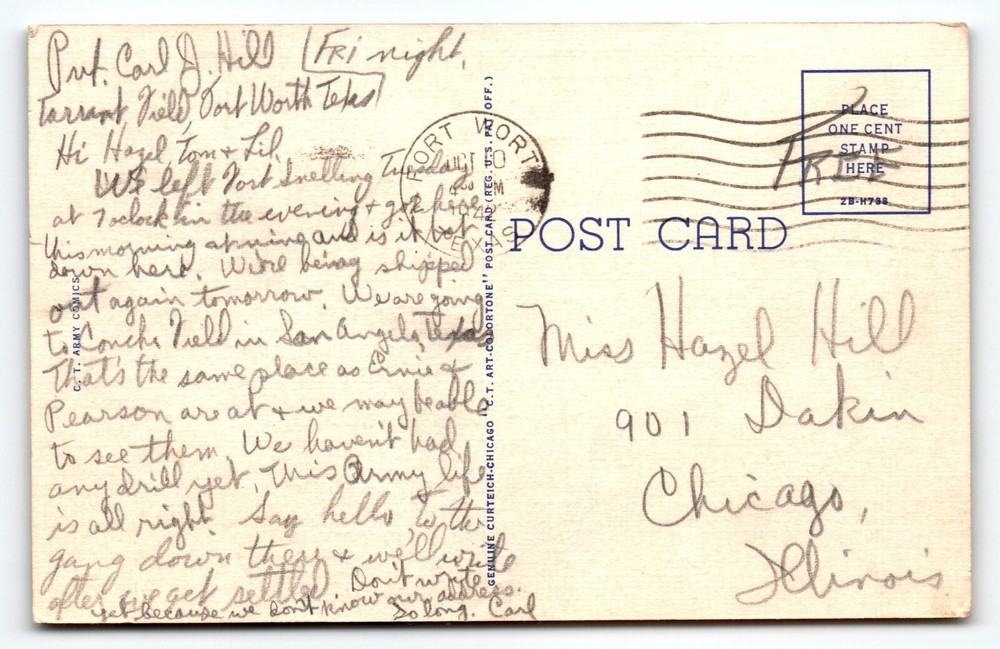 Pvt. Carl J. Hill Fri night,
Tarrant Field, Fort Worth Texas
Hi Hazel, Tom & Lil.
We left Fort Snelling Tuesday
at 7 oclock in the evening & got here
this morning at nine and is it hot
down here. We're being shipped
out again tomorrow. We are going
to Concho Field in San Angelo, Texas
That's the same place as Ernie &
Pearson are at & we may be able
to see them. We haven't had
any drill yet. This Army life
is all right. Say hello to the
gang down there & we'll write
after we get settled. Don't write
yet because we don't know our address.
So long. Carl
C. T. ARMY COMICS
GENUINE CURTEICH-CHICAGO "C.T. ART-COLORTONE" POST CARD (REG. U.S. PAT. OFF.)
FORT WORTH
TEXAS
POST CARD
PLACE
ONE CENT
STAMP
HERE
2B-H738
FREE
Miss Hazel Hill
901 Dakin
Chicago,
Illinois